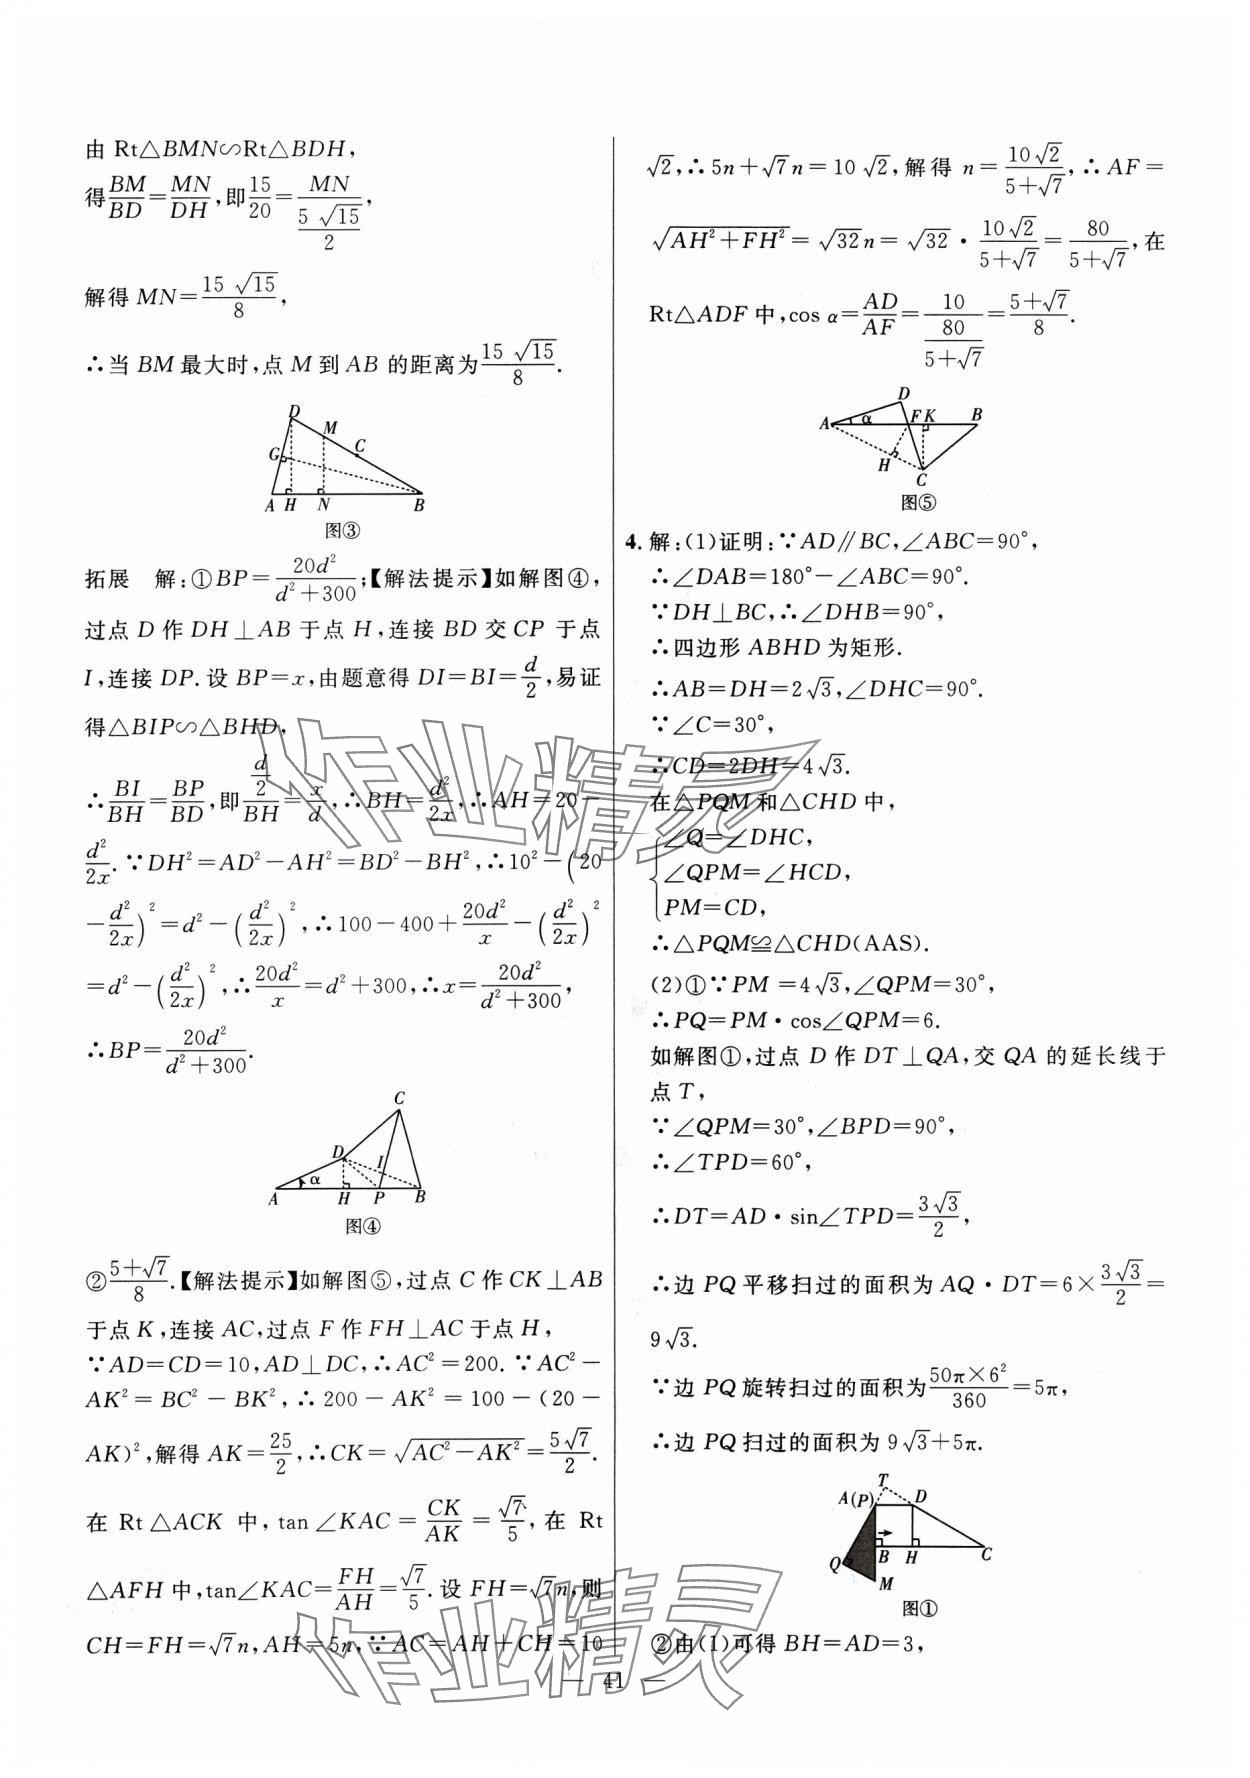 由 Rt△BMN∽Rt△BDH,
得BM/BD=MN/DH,即15/20=MN/(5√15/2),
解得 MN=15√15/8,
∴当 BM 最大时,点 M 到 AB 的距离为15√15/8.
D M C G A H N B
图③
拓展 解:①BP=20d²/(d²+300);【解法提示】如解图④,
过点 D 作 DH⊥AB 于点 H,连接 BD 交 CP 于点
I,连接 DP.设 BP=x,由题意得 DI=BI=d/2,易证
得△BIP∽△BHD,
∴BI/BH=BP/BD,即(d/2)/BH=x/d,∴BH=d²/2x,∴AH=20-
d²/2x.∵DH²=AD²-AH²=BD²-BH²,∴10²-(20
-d²/2x)²=d²-(d²/2x)²,∴100-400+20d²/x-(d²/2x)²
=d²-(d²/2x)²,∴20d²/x=d²+300,∴x=20d²/(d²+300),
∴BP=20d²/(d²+300).
C D I α A H P B
图④
②(5+√7)/8.【解法提示】如解图⑤,过点 C 作 CK⊥AB
于点 K,连接 AC,过点 F 作 FH⊥AC 于点 H,
∵AD=CD=10,AD⊥DC,∴AC²=200.∵AC²-
AK²=BC²-BK²,∴200-AK²=100-(20-
AK)²,解得 AK=25/2,∴CK=√(AC²-AK²)=5√7/2.
在 Rt△ACK 中,tan∠KAC=CK/AK=√7/5,在 Rt
△AFH 中,tan∠KAC=FH/AH=√7/5.设 FH=√7n,则
CH=FH=√7n,AH=5n,∵AC=AH+CH=10
√2,∴5n+√7n=10√2,解得 n=10√2/(5+√7),∴AF=
√(AH²+FH²)=√32n=√32·10√2/(5+√7)=80/(5+√7),在
Rt△ADF 中,cos α=AD/AF=10/(80/(5+√7))=(5+√7)/8.
D A α F K B H C
图⑤
4.解:(1)证明:∵AD∥BC,∠ABC=90°,
∴∠DAB=180°-∠ABC=90°.
∵DH⊥BC,∴∠DHB=90°,
∴四边形 ABHD 为矩形.
∴AB=DH=2√3,∠DHC=90°.
∵∠C=30°,
∴CD=2DH=4√3.
在△PQM 和△CHD 中,
{∠Q=∠DHC,
∠QPM=∠HCD,
PM=CD,
∴△PQM≌△CHD(AAS).
(2)①∵PM=4√3,∠QPM=30°,
∴PQ=PM·cos∠QPM=6.
如解图①,过点 D 作 DT⊥QA,交 QA 的延长线于
点 T,
∵∠QPM=30°,∠BPD=90°,
∴∠TPD=60°,
∴DT=AD·sin∠TPD=3√3/2,
∴边 PQ 平移扫过的面积为 AQ·DT=6×3√3/2=
9√3.
∵边 PQ 旋转扫过的面积为50π×6²/360=5π,
∴边 PQ 扫过的面积为 9√3+5π.
T A(P) D Q B H C M
图①
②由(1)可得 BH=AD=3,
— 41 —
作业精灵
作业精灵